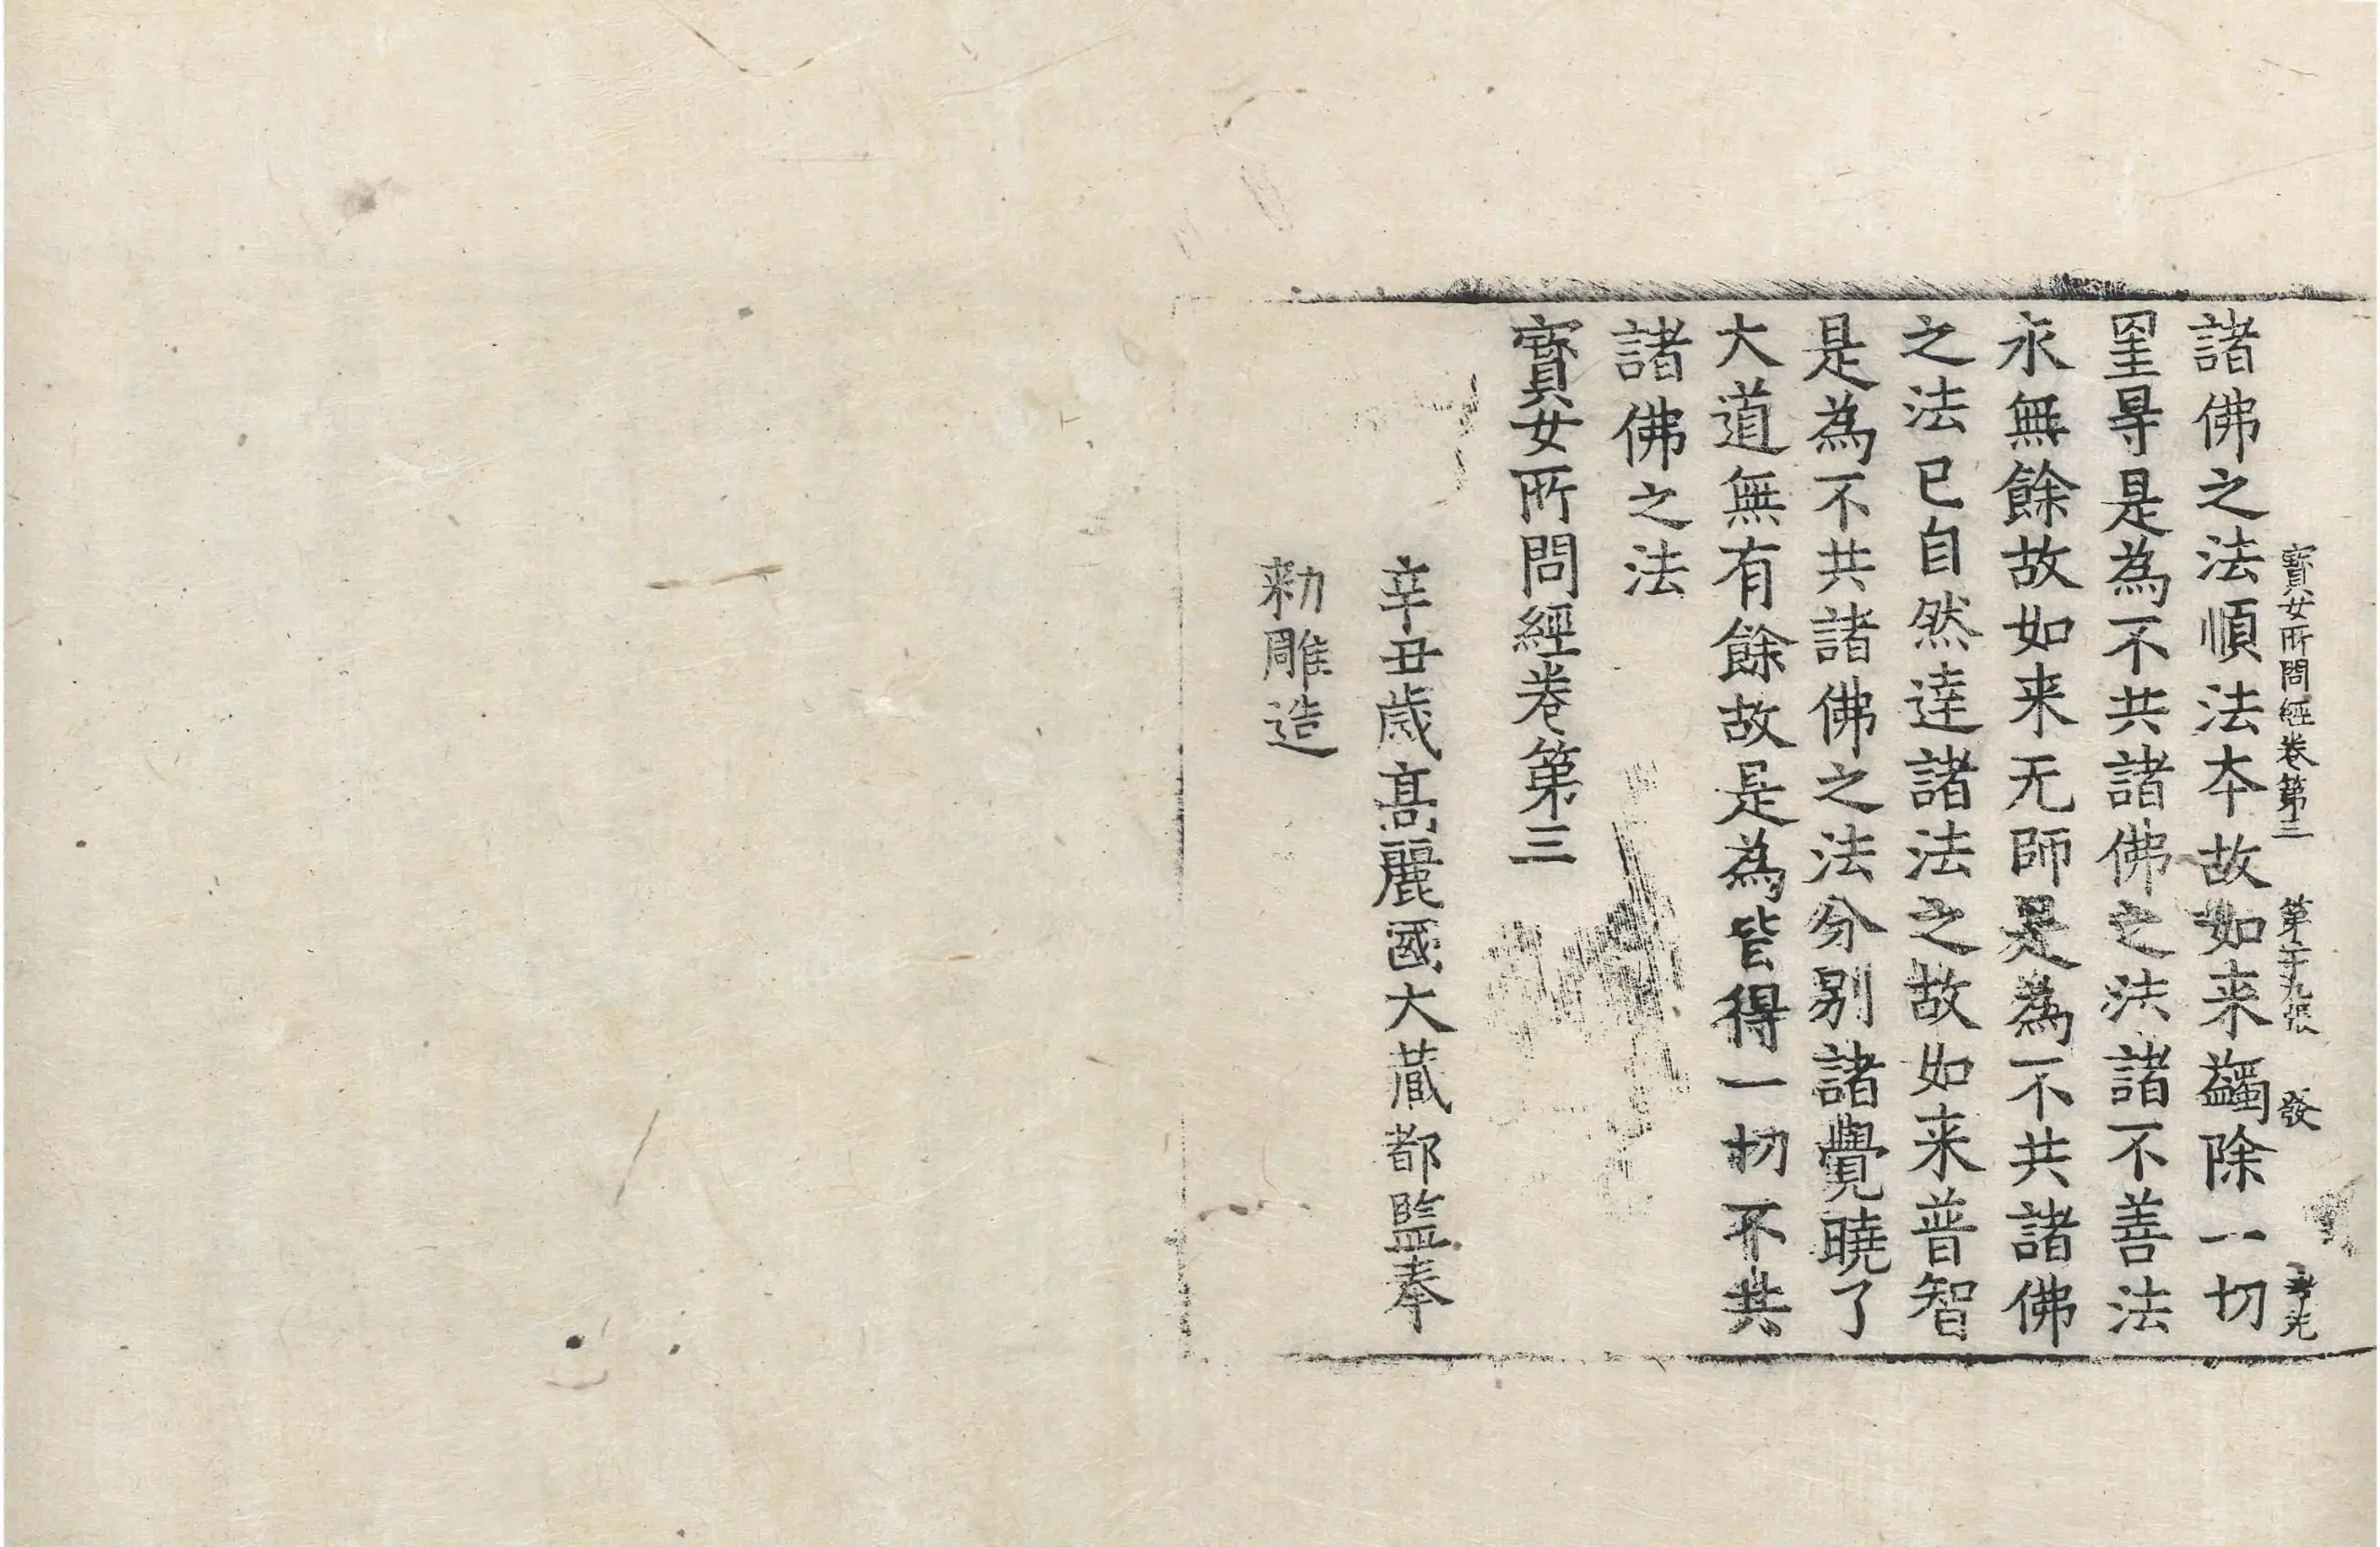 寶女所問經卷第三 第二十九張 發 孝光
諸佛之法順法本故如来蠲除一切
罣㝵是為不共諸佛之法諸不善法
永無餘故如来无師是為不共諸佛
之法已自然達諸法之故如来普智
是為不共諸佛之法分別諸覺曉了
大道無有餘故是為皆得一切不共
諸佛之法
寶女所問經卷第三
辛丑歲髙麗國大藏都監奉
勑雕造